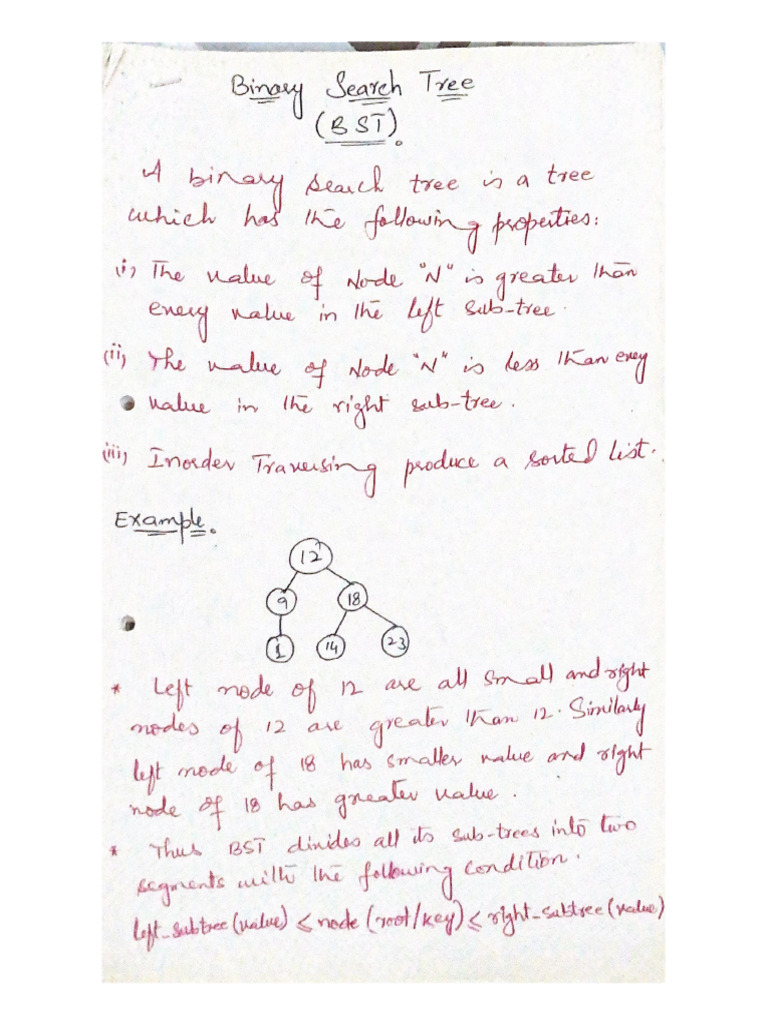 Binary Search Tree
(BST).
A binary search tree is a tree
which has the following properties:
(i) The value of Node "N" is greater than
every value in the left sub-tree.
(ii) The value of Node "N" is less than every
value in the right sub-tree.
(iii) Inorder Traversing produce a sorted list.
Example.
12
9 18
1 14 23
* Left node of 12 are all small and right
nodes of 12 are greater than 12. Similarly
left node of 18 has smaller value and right
node of 18 has greater value.
* Thus BST divides all its sub-trees into two
segments with the following condition.
left_subtree(value) ≤ node (root/key) ≤ right_subtree(value)